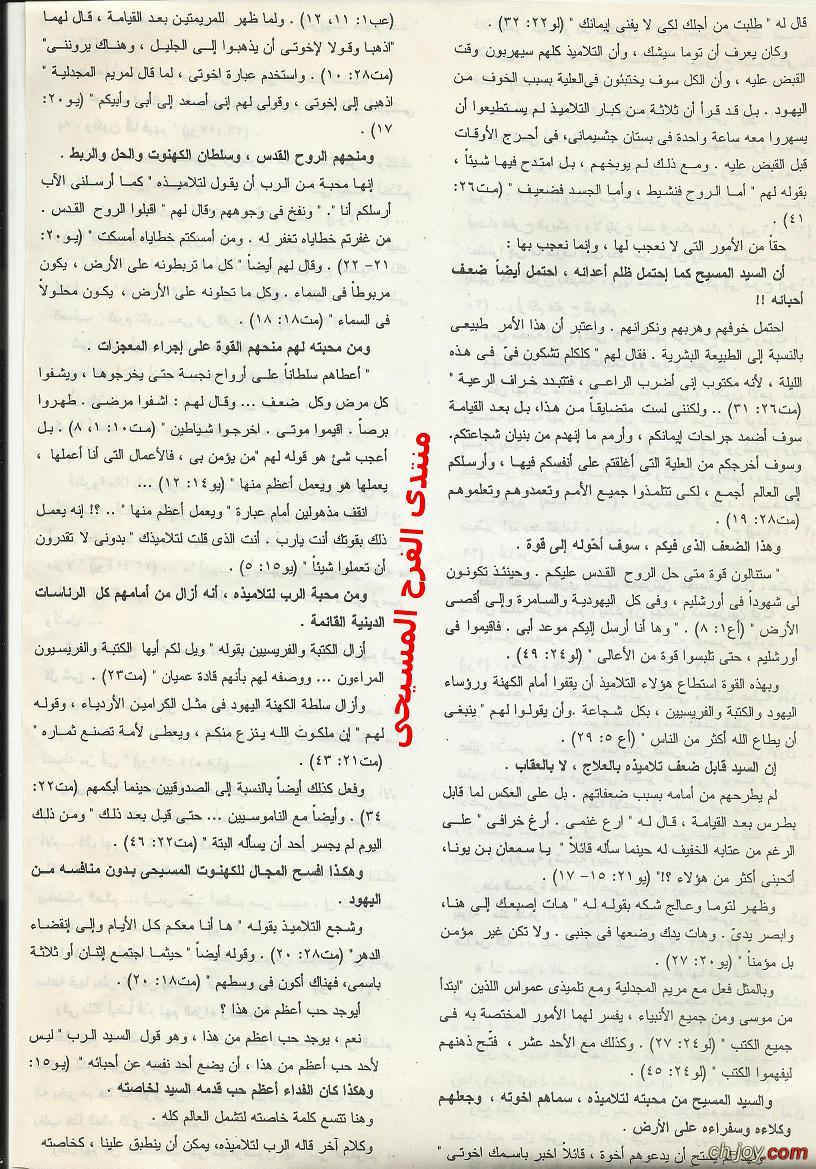 قال له " طلبت من أجلك لكى لا يفنى إيمانك " (لو٢٢: ٣٢) .
وكان يعرف أن توما سيشك ، وأن التلاميذ كلهم سيهربون وقت
القبض عليه ، وأن الكل سوف يختبئون فى العلية بسبب الخوف من
اليهود . بل قد قرأ أن ثلاثة من كبار التلاميذ لم يستطيعوا أن
يسهروا معه ساعة واحدة فى بستان جثسيمانى، فى أحرج الأوقات
قبل القبض عليه . ومع ذلك لم يوبخهم ، بل امتدح فيها شيئاً ،
بقوله لهم " أما الروح فنشيط ، وأما الجسد فضعيف " (مت٢٦:
٤١) .
حقاً من الأمور التى لا نعجب لها ، وإنما نعجب بها :
أن السيد المسيح كما إحتمل ظلم أعدائه ، احتمل أيضاً ضعف
أحبائه !!
احتمل خوفهم وهربهم ونكرانهم . واعتبر أن هذا الأمر طبيعى
بالنسبة إلى الطبيعة البشرية . فقال لهم " كلكلم تشكون فىّ فى هذه
الليلة ، لأنه مكتوب إنى أضرب الراعى ، فتتبدد خراف الرعية "
(مت٢٦: ٣١) .. ولكننى لست متضايقاً من هذا، بل بعد القيامة
سوف أضمد جراحات إيمانكم ، وأرمم ما إنهدم من بنيان شجاعتكم.
وسوف أخرجكم من العلية التى أغلقتم على أنفسكم فيها ، وأرسلكم
إلى العالم أجمع ، لكى تتلمذوا جميع الأمم وتعمدوهم وتعلموهم
(مت٢٨: ١٩) .
وهذا الضعف الذى فيكم ، سوف أحّوله إلى قوة .
" ستنالون قوة متى حل الروح القدس عليكم . وحينئذ تكونون
لى شهوداً فى أورشليم ، وفى كل اليهودية والسامرة وإلى أقصى
الأرض " (أع١: ٨) . " وها أنا أرسل إليكم موعد أبى . فاقيموا فى
أورشليم ، حتى تلبسوا قوة من الأعالى " (لو٢٤: ٤٩) .
وبهذه القوة استطاع هؤلاء التلاميذ أن يقفوا أمام الكهنة ورؤساء
اليهود والكتبة والفريسيين ، بكل شجاعة .وأن يقولوا لهم " ينبغى
أن يطاع الله أكثر من الناس " (أع ٥: ٢٩) .
إن السيد قابل ضعف تلاميذه بالعلاج ، لا بالعقاب .
لم يطرحهم من أمامه بسبب ضعفاتهم . بل على العكس لما قابل
بطرس بعد القيامة ، قال له " ارع غنمى . أرع خرافى " على
الرغم من عتابه الخفيف له حينما سأله قائلاً " يا سمعان بن يونا،
أتحبنى أكثر من هؤلاء ؟!" (يو٢١: ١٥- ١٧) .
وظهر لتوما وعالج شكه بقوله له " هات إصبعك إلى هنا،
وابصر يدىّ . وهات يدك وضعها فى جنبى . ولا تكن غير مؤمن
بل مؤمناً " (يو٢٠: ٢٧) .
وبالمثل فعل مع مريم المجدلية ومع تلميذى عمواس اللذين "ابتدأ
من موسى ومن جميع الأنبياء ، يفسر لهما الأمور المختصة به فى
جميع الكتب " (لو٢٤: ٢٧) . وكذلك مع الأحد عشر ، فتّح ذهنهم
ليفهموا الكتب " (لو٢٤: ٤٥) .
والسيد المسيح من محبته لتلاميذه ، سماهم اخوته ، وجعلهم
وكلاءه وسفراءه على الأرض .
يستح أن يدعوهم أخوة ، قائلاً اخبر باسمك اخوتى "
(عب١: ١١، ١٢) . ولما ظهر للمريمتين بعد القيامة ، قال لهما
"اذهبا وقولا لإخوتى أن يذهبوا إلى الجليل ، وهناك يروننى"
(مت٢٨: ١٠) . واستخدم عبارة اخوتى ، لما قال لمريم المجدلية "
اذهبى إلى إخوتى ، وقولى لهم إنى أصعد إلى أبى وأبيكم " (يو٢٠:
١٧) .
ومنحهم الروح القدس ، وسلطان الكهنوت والحل والربط .
إنها محبة من الرب أن يقول لتلاميذه " كما أرسلنى الآب
أرسلكم أنا ". " ونفخ فى وجوههم وقال لهم " اقبلوا الروح القدس .
من غفرتم خطاياه تغفر له . ومن أمسكتم خطاياه أمسكت " (يو٢٠:
٢١- ٢٢) . وقال لهم أيضاً " كل ما تربطونه على الأرض ، يكون
مربوطاً فى السماء . وكل ما تحلونه على الأرض ، يكون محلولاً
فى السماء " (مت١٨: ١٨) .
ومن محبته لهم منحهم القوة على إجراء المعجزات .
" أعطاهم سلطاناً على أرواح نجسة حتى يخرجوها ، ويشفوا
كل مرض وكل ضعف ... وقال لهم : اشفوا مرضى . طهروا
برصاً . اقيموا موتى . اخرجوا شياطين " (مت١٠: ١، ٨) . بل
أعجب شئ هو قوله لهم "من يؤمن بى ، فالأعمال التى أنا أعملها ،
يعملها هو ويعمل أعظم منها " (يو١٤: ١٢) ...
انقف مذهولين أمام عبارة " ويعمل أعظم منها " .. ؟! إنه يعمل
ذلك بقوتك أنت يارب . أنت الذى قلت لتلاميذك " بدونى لا تقدرون
أن تعملوا شيئاً " (يو١٥: ٥) .
ومن محبة الرب لتلاميذه ، أنه أزال من أمامهم كل الرئاسات
الدينية القائمة .
أزال الكتبة والفريسيين بقوله " ويل لكم أيها الكتبة والفريسيون
المراءون ... ووصفه لهم بأنهم قادة عميان " (مت٢٣) .
وأزال سلطة الكهنة اليهود فى مثل الكرامين الأردياء ، وقوله
لهم " إن ملكوت الله ينزع منكم ، ويعطى لأمة تصنع ثماره "
(مت٢١: ٤٣) .
وفعل كذلك أيضاً بالنسبة إلى الصدوقيين حينما أبكمهم (مت٢٢:
٣٤) . وأيضاً مع الناموسيين ... حتى قيل بعد ذلك " ومن ذلك
اليوم لم يجسر أحد أن يسأله البتة " (مت٢٢: ٤٦) .
وهكذا افسح المجال للكهنوت المسيحى بدون منافسه من
اليهود .
وشجع التلاميذ بقوله " ها أنا معكم كل الأيام وإلى إنقضاء
الدهر" (مت٢٨: ٢٠) . وقوله أيضاً " حيثما اجتمع إثنان أو ثلاثة
باسمى، فهناك أكون فى وسطهم " (مت١٨: ٢٠) .
أيوجد حب أعظم من هذا ؟
نعم ، يوجد حب اعظم من هذا ، وهو قول السيد الرب " ليس
لأحد حب أعظم من هذا ، أن يضع أحد نفسه عن أحبائه " (يو١٥:
وهكذا كان الفداء أعظم حب قدمه السيد لخاصته .
وهنا تتسع كلمة خاصته لتشمل العالم كله .
وكلام آخر قاله الرب لتلاميذه، يمكن أن ينطبق علينا ، كخاصته
منتدى الفرح المسيحى
ch-joy.com